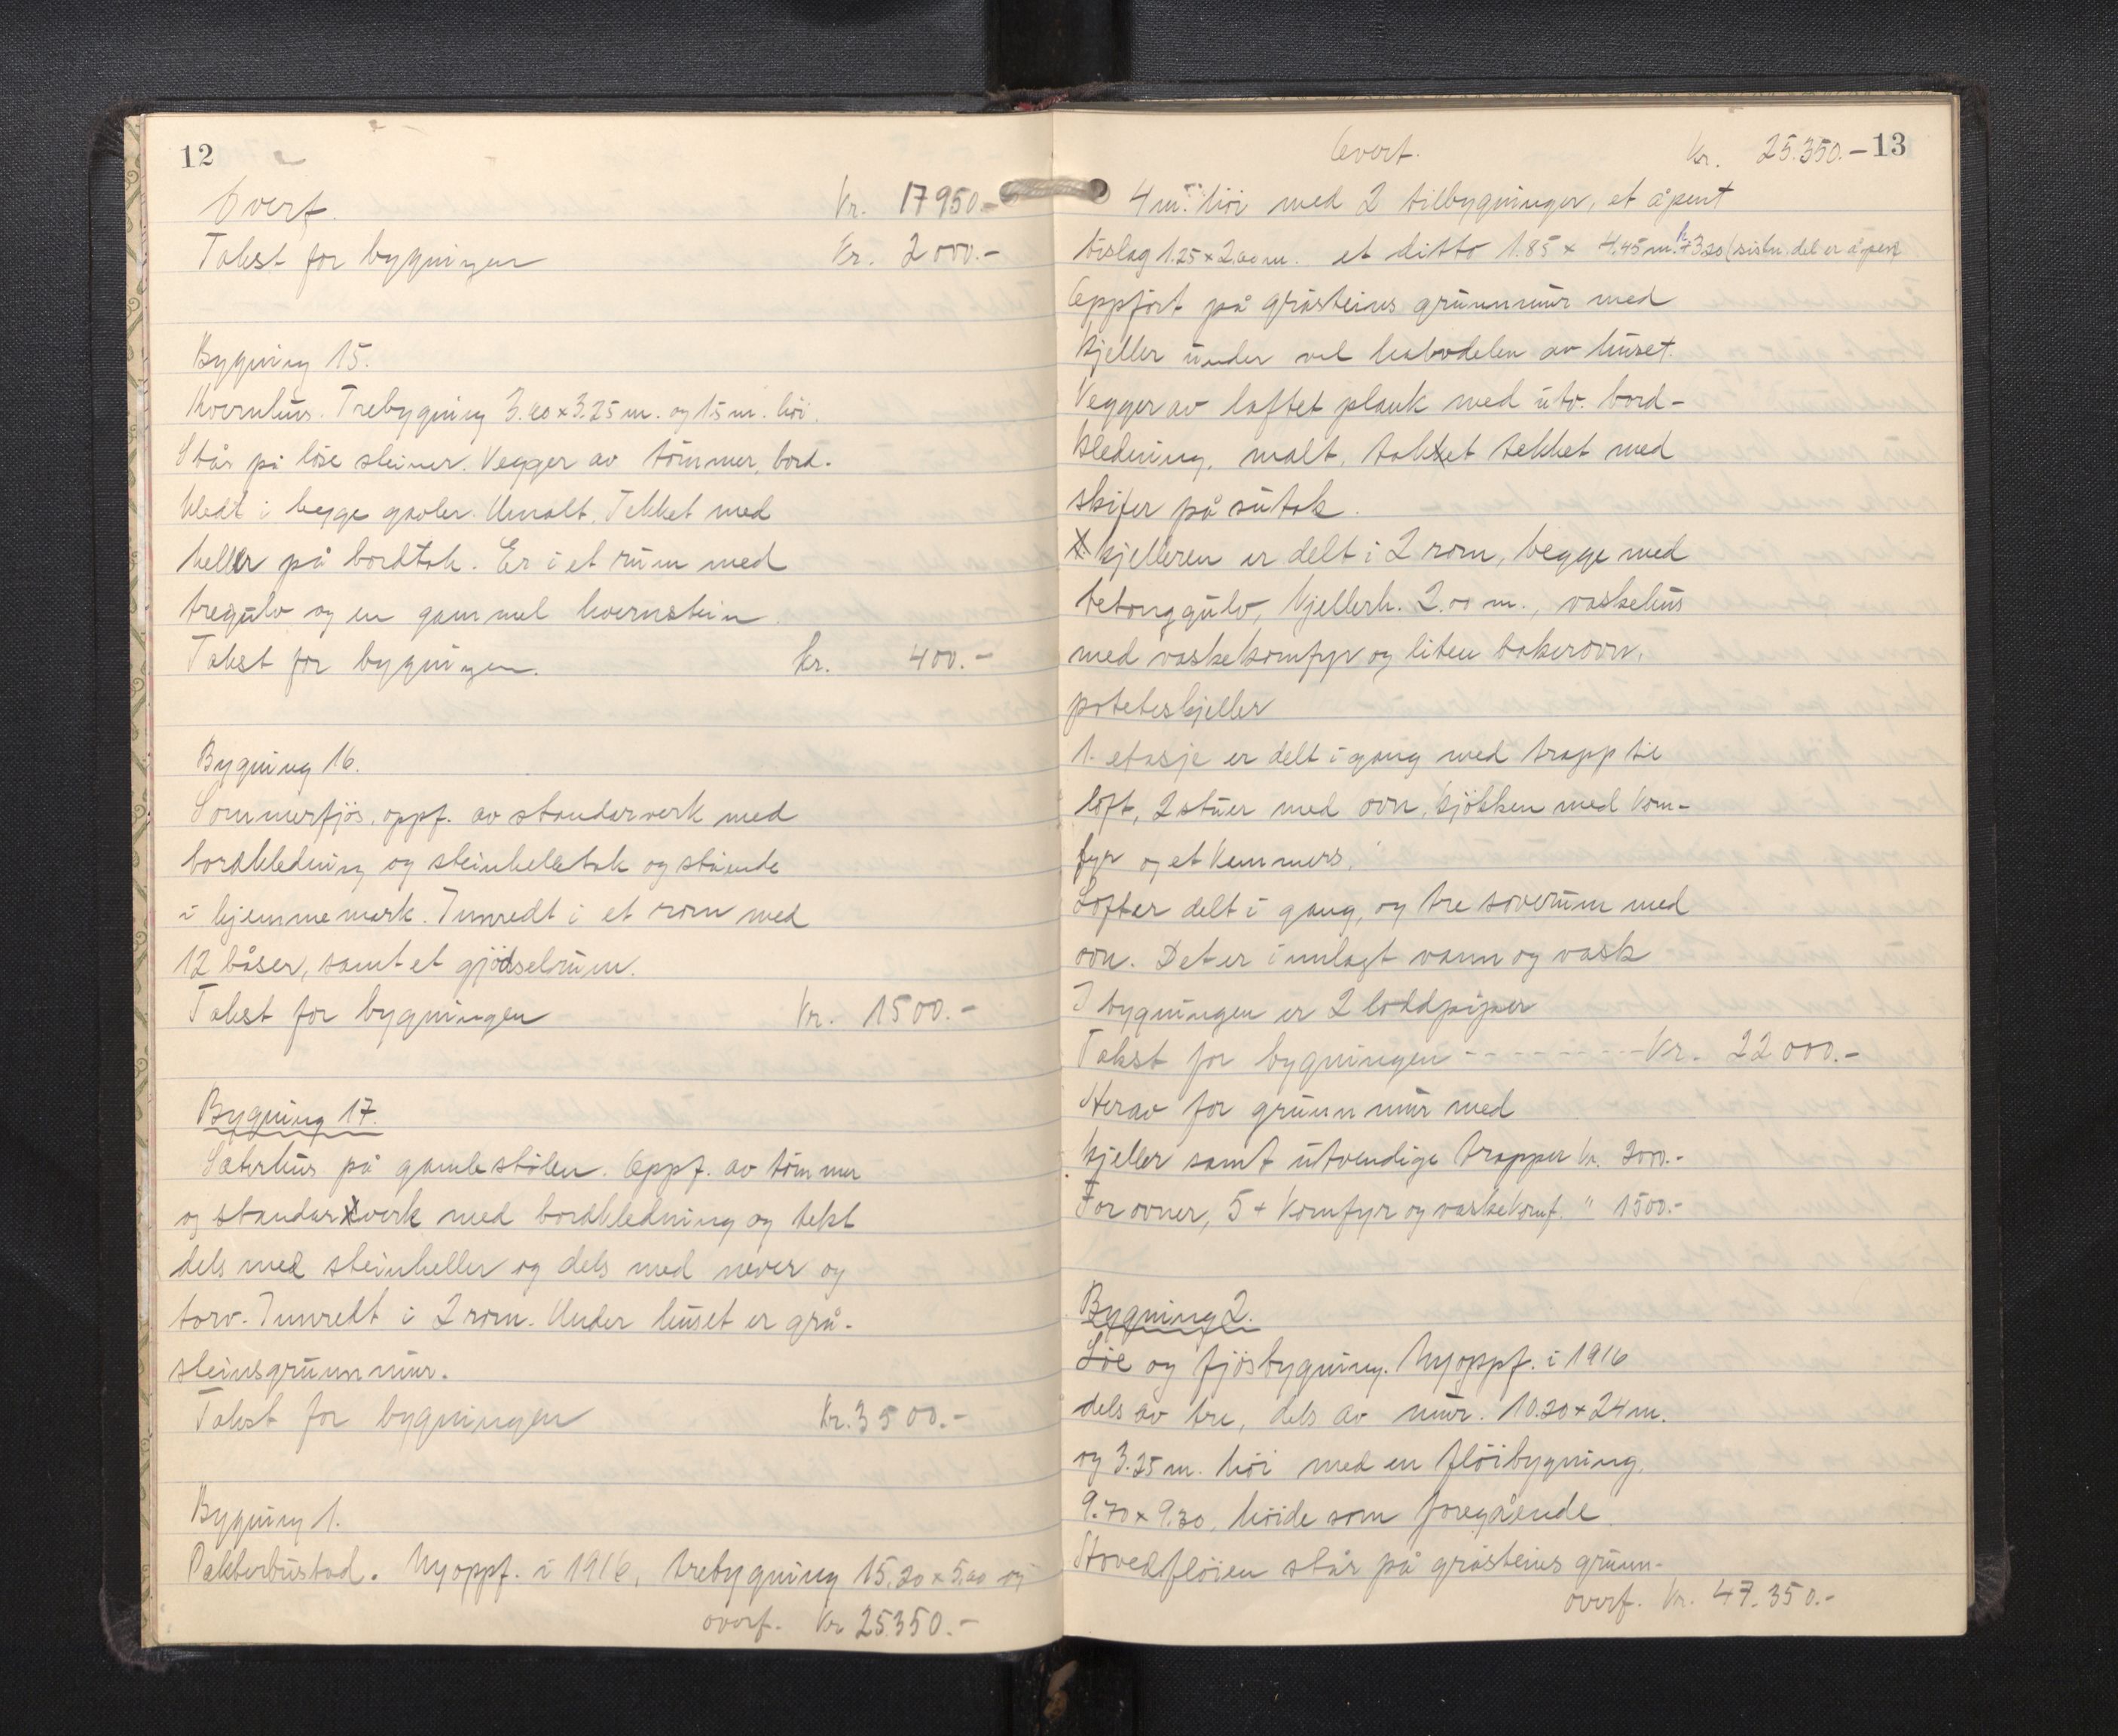 12
Overf. Kr. 17950.-
Takst for bygningen Kr. 2000.-
Bygning 15.
Kvernhus. Trebygning 3.40 x 3.25 m. og 1.5 m. höi.
Står på löse steiner. Vegger av tömmer, bord-
kledt i begge gavler. Umalt. Tekket med
heller på bordtak. Er i et rum med
tregulv og en gammel kvernstein.
Takst for bygningen. kr. 400.-
Bygning 16.
Sommerfjös, oppf. av standarverk med
bordkledning og steinhelletak og stående
i hjemmemark. Innredt i et rom med
12 båser, samt et gjödselrum.
Takst for bygningen Kr. 1500.-
Bygning 17.
Sæterhus på gamlestölen. Oppf. av tömmer
og standarverk med bordkledning og tekt
dels med steinheller og dels med never og
torv. Innredt i 2 rom. Under huset er grå-
steinsgrunnmur.
Takst for bygningen Kr. 3500.-
Bygning 1.
Pakterbustad. Nyoppf. i 1916, trebygning 15.20 x 5.00 og
overf. Kr 25350.-
Overf. Kr. 25.350.- 13
4 m. höi med 2 tilbygninger, et åpent
bislag 1.25 x 2.00 m. et ditto 1.85 x 4.45 m. + 3.20 (siste del er åpen)
Oppfört på gråsteins grunnmur med
kjeller under vel halvdelen av huset.
Vegger av laftet plank med utv. bord-
kledning, malt, taket tekket med
skifer på sutak.
Kjelleren er delt i 2 rom, begge med
betonggulv, kjellerh. 2.00 m., vaskehus
med vaskekomfyr og liten bakerovn,
poteteskjeller
1. etasje er delt i gang med trapp til
loft, 2 stuer med ovn, kjökken med kom-
fyr og et kammers.
Loftet delt i gang, og tre soverum med
ovn. Det er innlagt vann og vask
I bygningen er 2 loddpiper
Takst for bygningen - - - - - - - - Kr. 22000.-
Herav for grunnmur med
kjeller samt utvendige trapper kr. 3000.-
For ovner, 5 + komfyr og vaskekomf. " 1500.-
Bygning 2.
Löe og fjösbygning. Nyoppf. i 1916
dels av tre, dels av mur. 10.20 x 24 m.
og 3.25 m. höi med en flöibygning,
9.70 x 9.30, höide som foregående.
Hovedflöien står på gråsteins grunn-
overf. Kr. 47.350.-